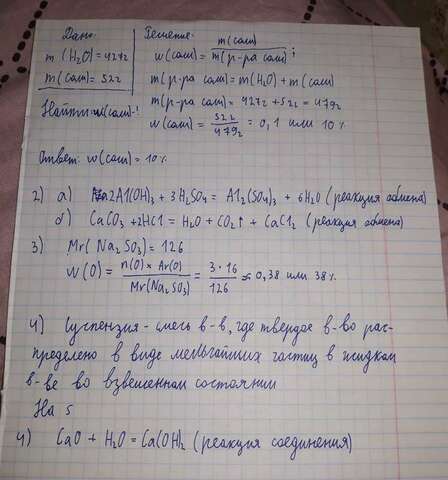 Дано: Решение:
m(H₂O) = 427г w(соли) = m(соли) / m(р-ра соли) ;
m(соли) = 52г m(р-ра соли) = m(H₂O) + m(соли)
Найти: w(соли)-? m(р-ра соли) = 427г + 52г = 479г
w(соли) = 52г / 479г = 0,1 или 10%
Ответ: w(соли) = 10%
2) а) 2Al(OH)₃ + 3H₂SO₄ = Al₂(SO₄)₃ + 6H₂O (реакция обмена)
б) CaCO₃ + 2HCl = H₂O + CO₂↑ + CaCl₂ (реакция обмена)
3) Mr(Na₂SO₃) = 126
W(O) = n(O) × Ar(O) / Mr(Na₂SO₃) = 3·16 / 126 = 0,38 или 38%
4) Суспензия - смесь в-в, где твердое в-во рас-
пределено в виде мельчайших частиц в жидком
в-ве во взвешенном состоянии
На 5
4) CaO + H₂O = Ca(OH)₂ (реакция соединения)